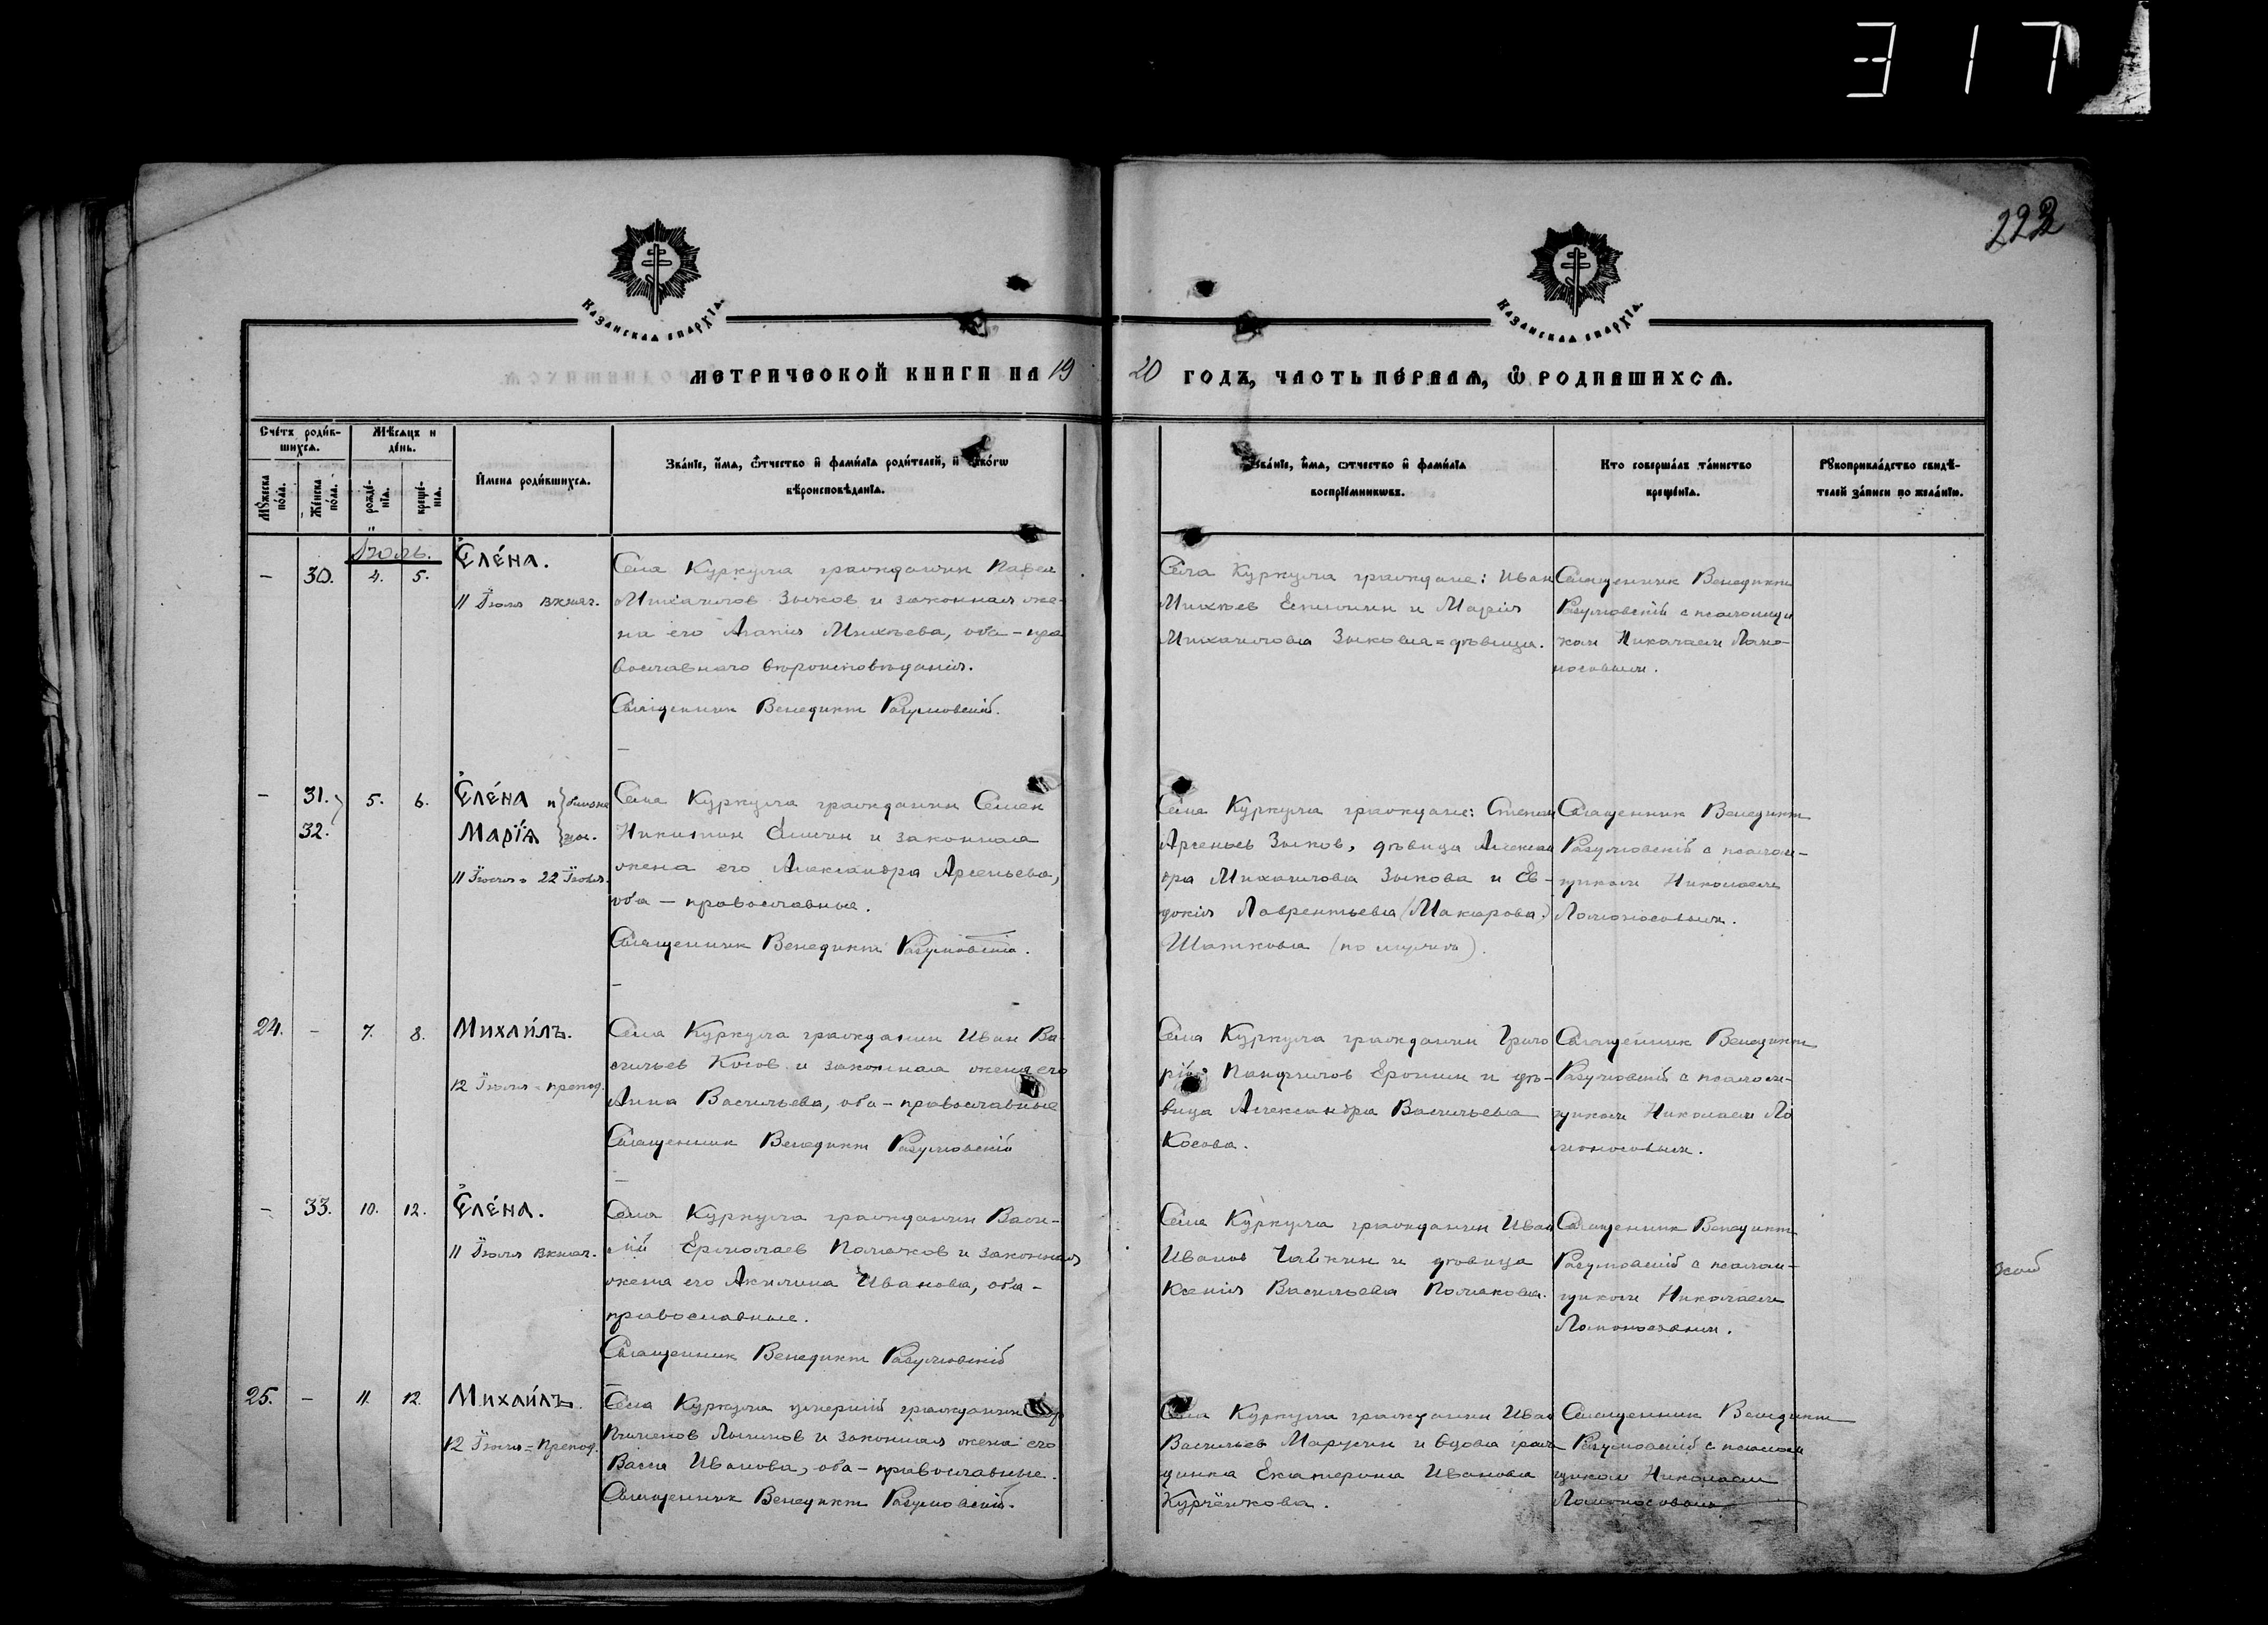 317
222
Казанская епархїа.
Казанская епархїа.
МЕТРИЧЕСКОЙ КНИГИ НА 1920 ГОДЪ, ЧАСТЬ ПЕ́РВАѦ, Ѽ РОДИВШИХСѦ.
Сче́тъ роди́в-
шихсѧ.
Мѣ́сяцъ и
де́нь.
Мꙋ́жеска
по́ла.
Же́нска
по́ла.
рожде́-
нїѧ.
креще́-
нїѧ.
И҆мена роди́вшихсѧ.
Зва́нїе, и҆́мѧ, ѻ҆́тчество и҆ фами́лїѧ роди́телей, и҆ како́гѡ
вѣроисповѣ́данїѧ.
Зва́нїе, и҆́мѧ, ѻ҆́тчество и҆ фами́лїѧ
воспрїе́мникѡвъ.
Кто соверша́лъ та́инство
креще́нїѧ.
Рꙋкоприкла́дство свидѣ́-
телей за́писи по жела́нїю.
Іюль.
— 30. 4. 5.
Єле́на.
11 Іюля включ.
Села Куркула гражданин Павел
Михаилов Зыков и законная же-
на его Агапия Михѣева, оба – пра
вославного вѣроисповѣданія.
Священник Венедикт Разумовскій.
Села Куркула граждане: Иван
Михѣев и Марія
Михаилова Зыкова = дѣвица.
Священник Венедикт
Разумовскій с псаломщи
ком Николаем Ломо-
носовым.
— 31. 32. 5. 6.
Єле́на и
Марі́ѧ
11 Іюля 22 Іюля.
Села Куркула гражданин Семен
Никитин и законная
жена его Александра Арсеньева,
оба – православные.
Священник Венедикт Разумовскій.
Села Куркула граждане: Степан
Арсеньев Зыков, дѣвица Алексан
дра Михаилова Зыкова и Ев-
докія Лаврентьева (Макарова)
Шаткова (по мужѣ).
Священник Венедикт
Разумовскій с псалом-
щиком Николаем
Ломоносовым.
24. — 7. 8.
Михаи́лъ.
12 Іюля = препод.
Села Куркула гражданин Иван Ва
сильев Косов и законная жена его
Анна Васильева, оба – православные
Священник Венедикт Разумовскій
Села Куркула гражданин Григо
рій Панфилов Ерошин и дѣ-
вица Александра Васильева
Косова.
Священник Венедикт
Разумовскій с псалом-
щиком Николаем Ло
моносовым.
— 33. 10. 12.
Єле́на.
11 Іюля включ.
Села Куркула гражданин Васи-
лій Ермолаев Поляков и законная
жена его Акилина Иванова, оба –
православные.
Священник Венедикт Разумовскій
Села Куркула гражданин Иван
Иванов Чавкин и дѣвица
Ксенія Васильева Полякова.
Священник Венедикт
Разумовскій с псалом-
щиком Николаем
Ломоносовым.
25. — 11. 12.
Михаи́лъ.
12 Іюля = Препод.
Села Куркула умершій гражданин
Пименов Логинов и законная жена его
Васса Иванова, оба – православные.
Священник Венедикт Разумовскій.
Села Куркула гражданин Иван
Васильев Марусин и вдова граж
данка Екатерина Иванова
Курчёнкова.
Священник Венедикт
Разумовскій с псалом
щиком Николаем
Ломоносовым